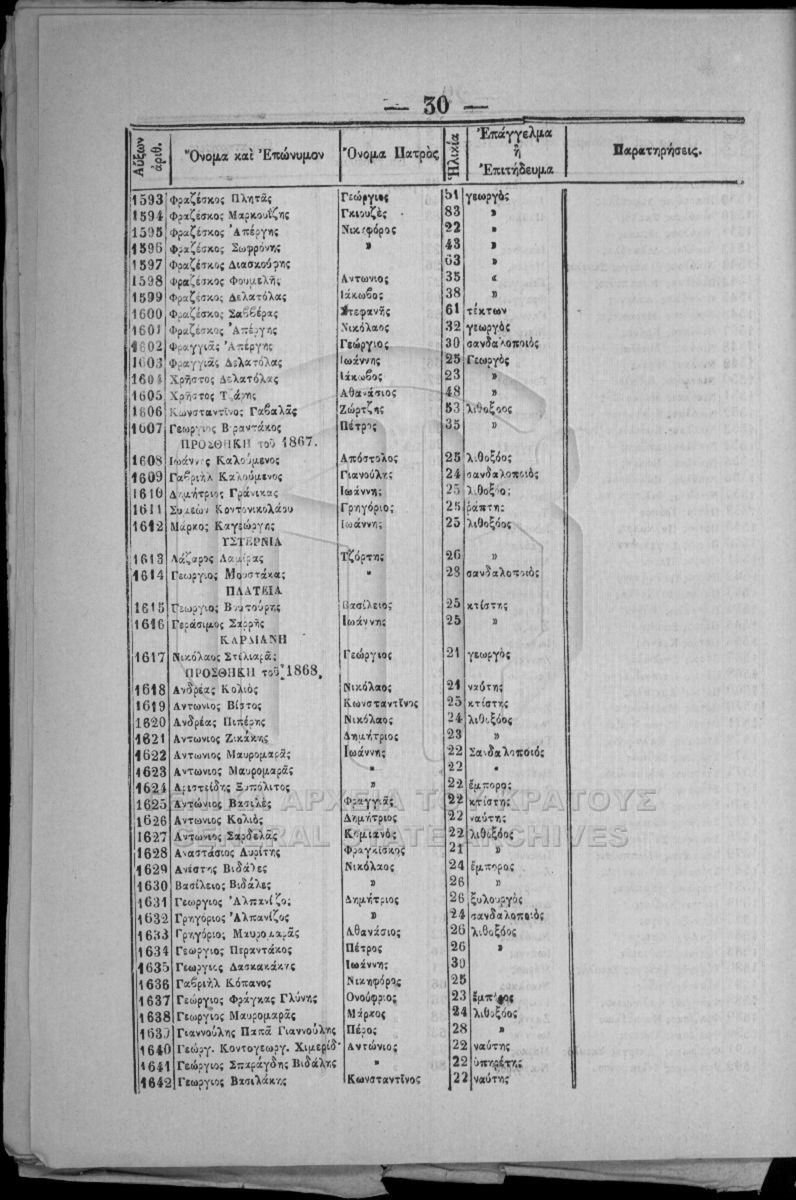 — 30 —
Αὔξων ἀριθ. Ὄνομα καὶ Ἐπώνυμον Ὄνομα Πατρὸς Ἡλικία Ἐπάγγελμα ἢ Ἐπιτήδευμα Παρατηρήσεις.
1593 Φραζέσκος Πλητᾶς Γεώργιος 51 γεωργὸς
1594 Φραζέσκος Μαρκουΐζης Γκιουζὲς 83 »
1595 Φραζέσκος Ἀπέργης Νικηφόρος 22 »
1596 Φραζέσκος Σωφρόνης » 43 »
1597 Φραζέσκος Διασκούρης 63 »
1598 Φραζέσκος Φουμελῆς Αντωνιος 35 «
1599 Φραζέσκος Δελατόλας Ἰάκωβος 38 »
1600 Φραζέσκος Σαββέρας Στεφανῆς 61 τέκτων
1601 Φραζέσκος Ἀπέργης Νικόλαος 32 γεωργὸς
1602 Φραγγιᾶς Ἀπέργης Γεώργιος 30 σανδαλοποιὸς
1603 Φραγγιᾶς Δελατόλας Ἰωάννης 25 Γεωργὸς
1604 Χρῆστος Δελατόλας Ἰάκωβος 23 »
1605 Χρῆστος Ἀθανάσιος 48 »
1606 Κωνσταντῖνος Γαβαλᾶς Ζώρτζης 53 λιθοξοος
1607 Γεωργιος Βεραντάκος Πέτρος 35 »
ΠΡΟΣΘΗΚΗ τοῦ 1867.
1608 Ἰωάννης Καλούμενος Απόστολος 25 λιθοξόος
1609 Γαβριὴλ Καλούμενος Γιανούλης 24 σανδαλοποιὸς
1610 Δημήτριος Γράνικας Ἰωάννης 25 λιθοξόος
1611 Συμεὼν Κοντονικολάου Γρηγόριος 25 ῥάπτης
1612 Μάρκος Καγεώργης Ἰωάννης 25 λιθοξόος
ΥΣΤΕΡΝΙΑ
1613 Λάζαρος Λαμίρας Τζόρτης 26 »
1614 Γεωργιος Μουστάκας » 28 σανδαλοποιὸς
ΠΛΑΤΕΙΑ
1615 Γεωργιος Βουτούρης Βασίλειος 25 κτίστης
1616 Γεράσιμος Σαρρῆς Ἰωάννης 25 »
ΚΑΡΔΙΑΝΗ
1617 Νικόλαος Στιλιαρᾶς Γεώργιος 21 γεωργὸς
ΠΡΟΣΘΗΚΗ τοῦ 1868.
1618 Ανδρέας Κολιὸς Νικόλαος 21 ναύτης
1619 Αντωνιος Βίστος Κωνσταντῖνος 25 κτίστης
1620 Ανδρέας Πιπέρης Νικόλαος 24 λιθοξόος
1621 Αντωνιος Ζικάκης Δημήτριος 23 »
1622 Αντωνιος Μαυρομαρᾶς Ἰωάννης 22 Σανδαλοποιός
1623 Αντωνιος Μαυρομαρᾶς » 22 »
1624 Αριστείδης Ξυπόλιτος » 22 ἔμπορος
1625 Αντώνιος Βασιλὲς Φραγγιᾶς 22 κτίστης
1626 Αντωνιος Κολιὸς Δημήτριος 22 ναύτης
1627 Αντωνιος Σαρδελᾶς Κοσμιανὸς 22 λιθοξόος
1628 Αναστάσιος Λυρίτης Φραγκίσκος 21 »
1629 Ανέστης Βιδάλες Νικόλαος 24 ἔμπορος
1630 Βασίλειος Βιδάλες » 26 »
1631 Γεωργιος Ἀλπανίζος Δημήτριος 26 ξυλουργὸς
1632 Γρηγόριος Ἀλπανίζος » 24 σανδαλοποιὸς
1633 Γρηγόριος Μαυρομαρᾶς Αθανάσιος 26 λιθοξόος
1634 Γεωργιος Περαντάκος Πέτρος 26 »
1635 Γεωργιος Δασκακάκης Ἰωάννης 30
1636 Γαβριὴλ Κόπανος Νικηφόρος 25
1637 Γεώργιος Φράγκας Γλύνης Ονούφριος 23 ἔμπορος
1638 Γεωργιος Μαυρομαρᾶς Μάρκος 24 λιθοξόος
1639 Γιαννούλης Παπᾶ Γιαννούλης Πέρος 28 »
1640 Γεώργ. Κοντογεωργ. Χιμερίδ Αντώνιος 22 ναύτης
1641 Γεώργιος Σπαράγδης Βιδάλης » 22 ὑπηρέτης
1642 Γεωργιος Βασιλάκης Κωνσταντῖνος 22 ναύτης
ΑΡΧΕΙΑ ΤΟΥ ΚΡΑΤΟΥΣ
GENERAL STATE ARCHIVES